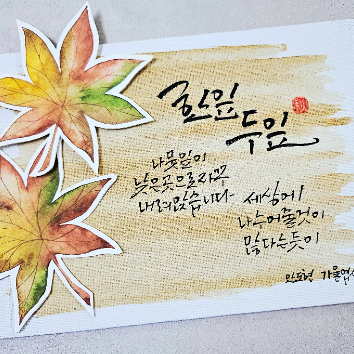 한잎
두잎
나뭇잎이
낮은곳으로자꾸
내려앉습니다-
세상에
나누어줄것이
많다는듯이
안도현 가을엽서